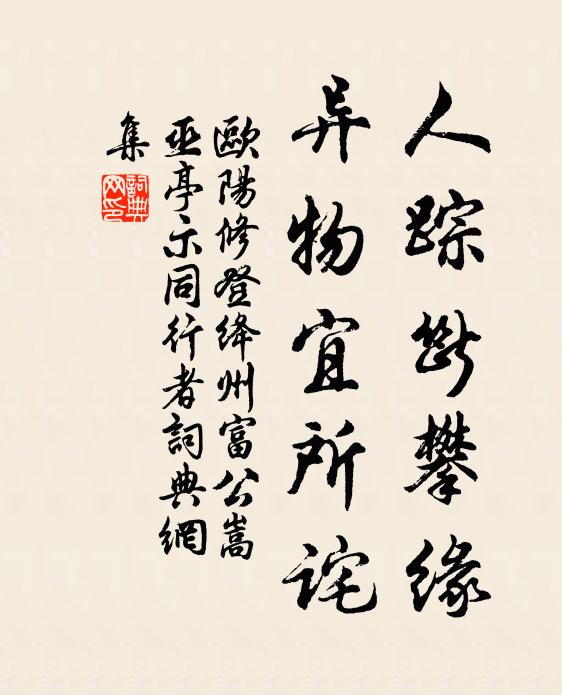 人踪断攀缘
异物宜所诧
歐陽修登绛州富公嵩
巫亭示同行者詞典網
集
詞典网印